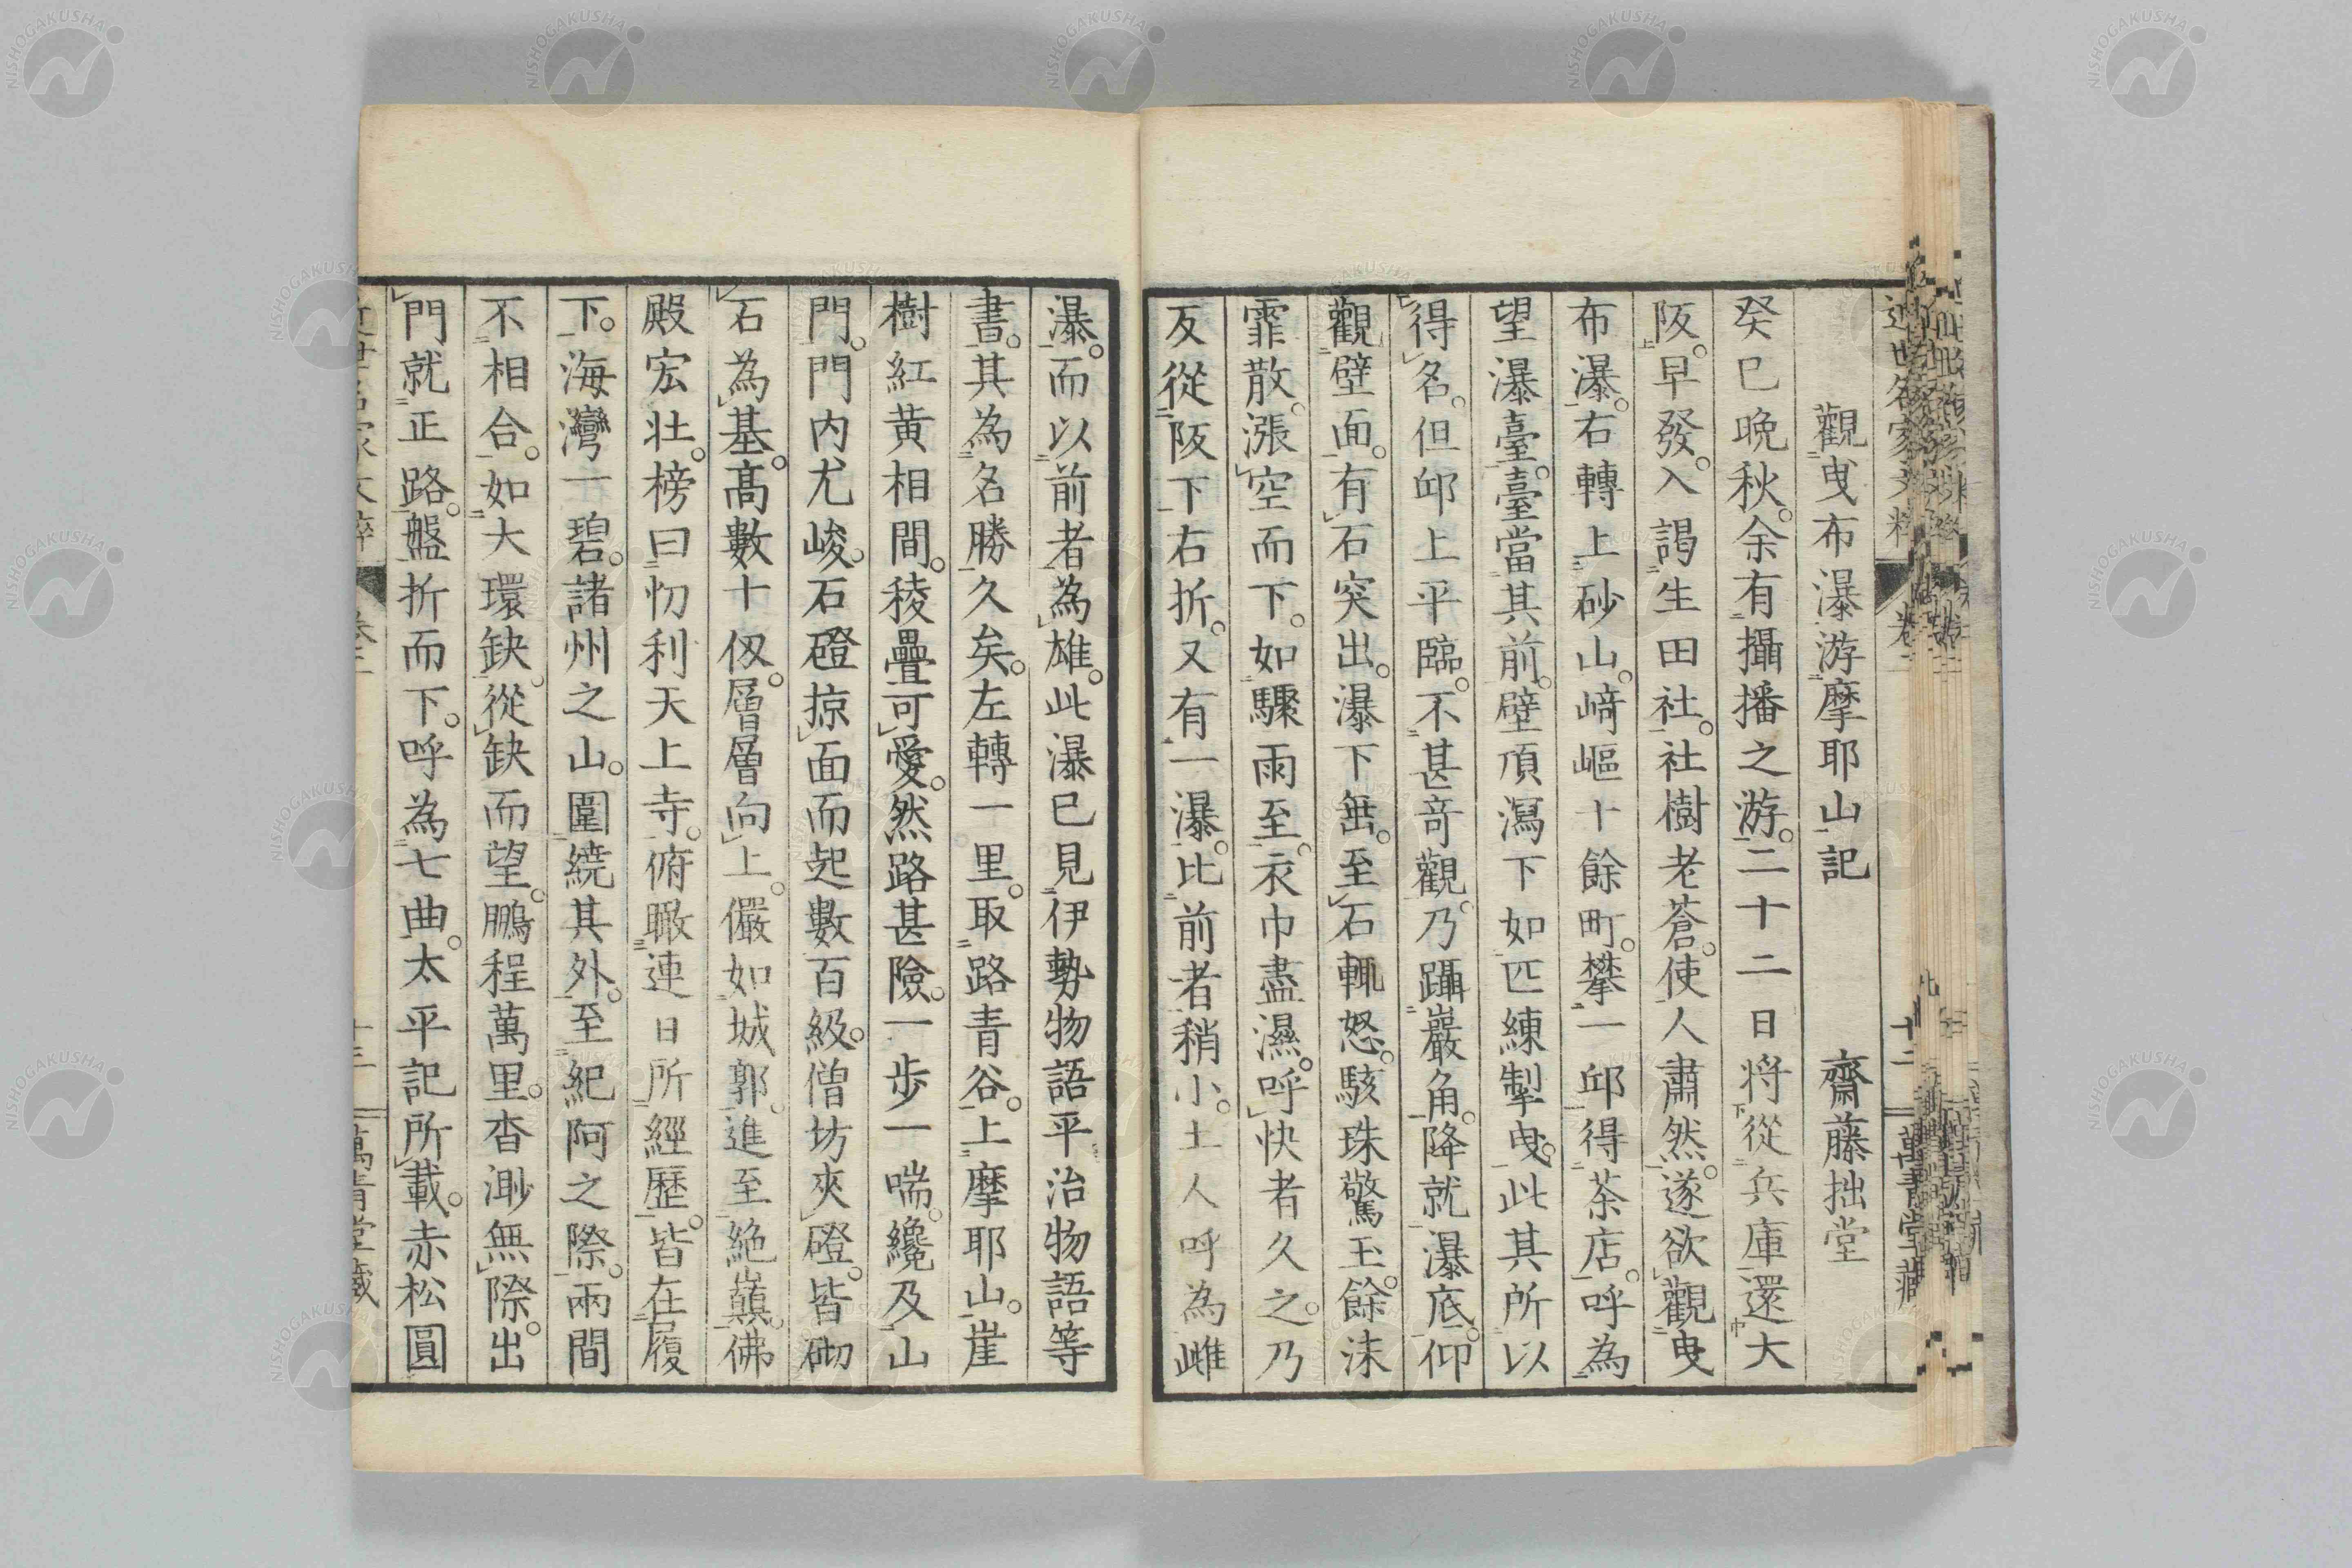 觀曳布瀑游摩耶山記 齋藤拙堂
癸巳晚秋。余有攝播之游。二十二日將從兵庫還大
阪。早發。入謁生田社。社樹老蒼。使人肅然。遂欲觀曳
布瀑。右轉上砂山。﨑嶇十餘町。攀一邱得茶店。呼為
望瀑臺。臺當其前。壁頂瀉下如匹練掣曳。此其所以
得名。但邱上平臨。不甚奇觀。乃躡巖角。降就瀑底。仰
觀壁面。有石突出。瀑下垂。至石輒怒。駭珠驚玉。餘沫
霏散。漲空而下。如驟雨至。衣巾盡濕。呼快者久之。乃
反從阪下右折。又有一瀑。比前者稍小。土人呼為雌
瀑。而以前者為雄。此瀑已見伊勢物語平治物語等
書。其為名勝久矣。左轉一里。取路青谷。上摩耶山。崖
樹紅黃相間。稜疊可愛。然路甚險。一步一喘。纔及山
門。門内尤峻。石磴掠面而起數百級。僧坊夾磴。皆砌
石為基。高數十仭。層層向上。儼如城郭。進至絶巓。佛
殿宏壯。榜曰忉利天上寺。俯瞰連日所經歷。皆在履
下。海灣一碧。諸州之山。圍繞其外。至紀阿之際。兩間
不相合。如大環缺。從缺而望。鵬程萬里。杳渺無際。出
門就正路。盤折而下。呼為七曲。太平記所載。赤松圓
近世名家文粹 卷二 十二 萬青堂藏